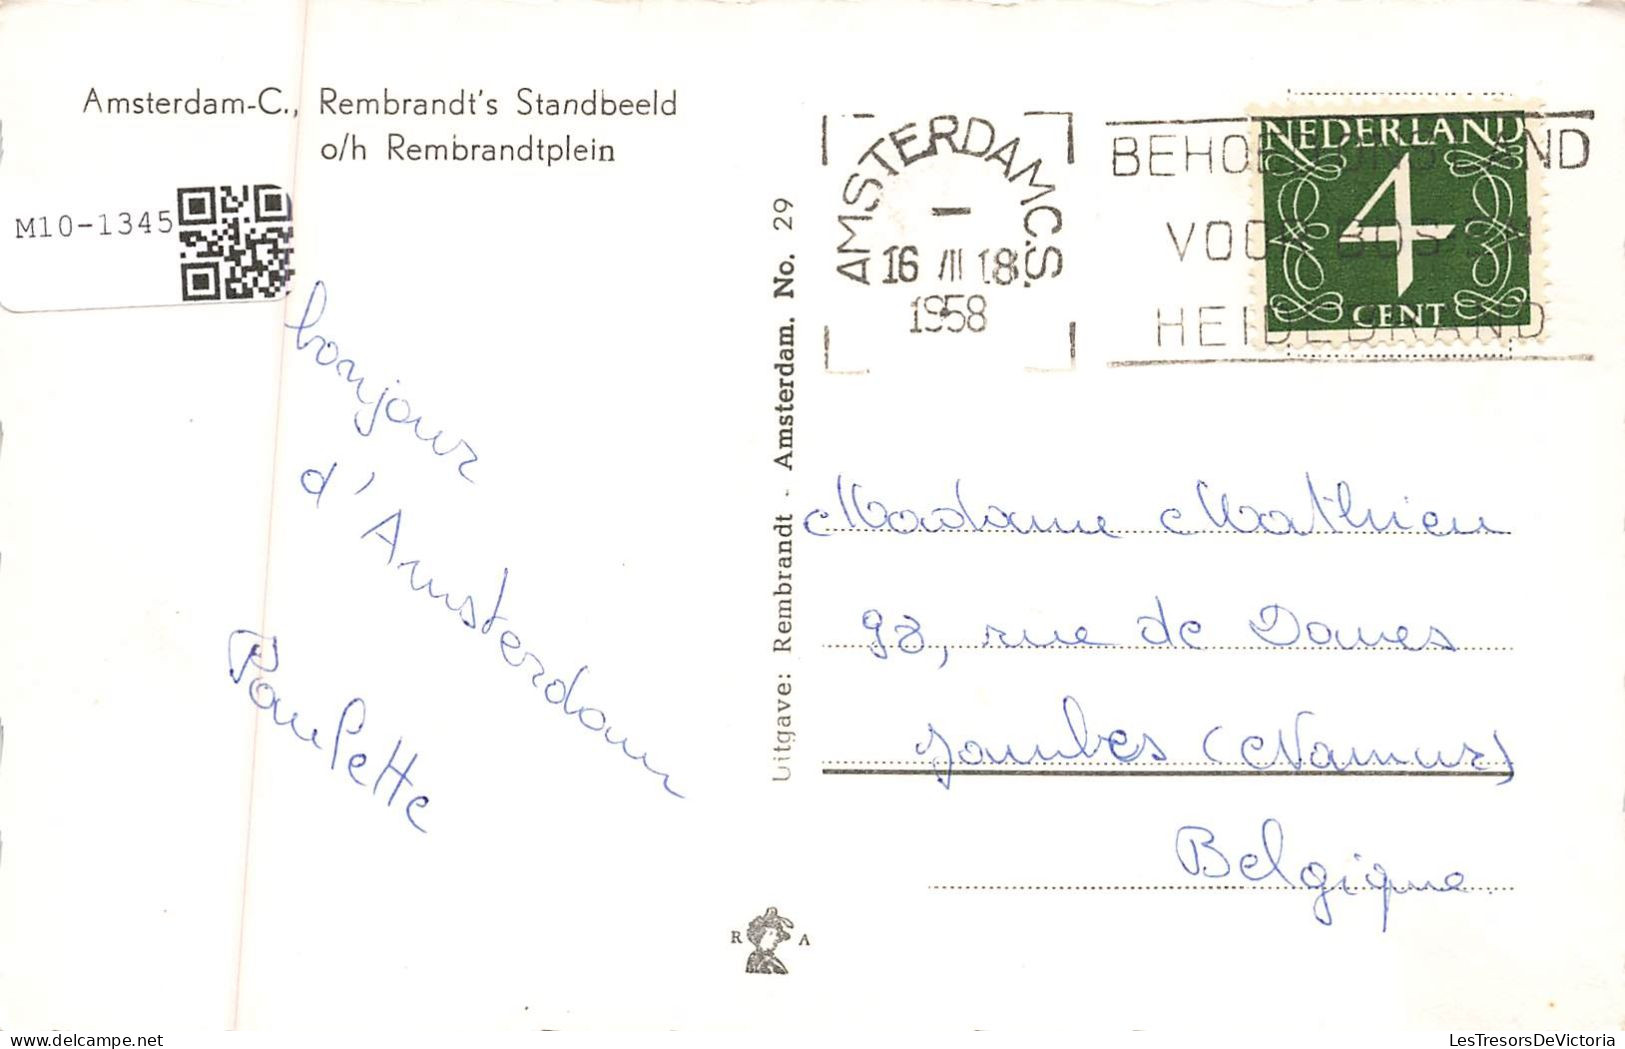 Amsterdam-C., Rembrandt's Standbeeld
o/h Rembrandtplein
M10-1345
bonjour
d'Amsterdam
Paulette
Uitgave: Rembrandt - Amsterdam. No. 29
R A
AMSTERDAM C.S.
16 III 18
1958
BEHOED ONS LAND
VOOR BOS EN
HEIDEBRAND
NEDERLAND
4
CENT
Madame Mathieu
98, rue de Daves
Jambes (Namur)
Belgique.
LesTresorsDeVictoria